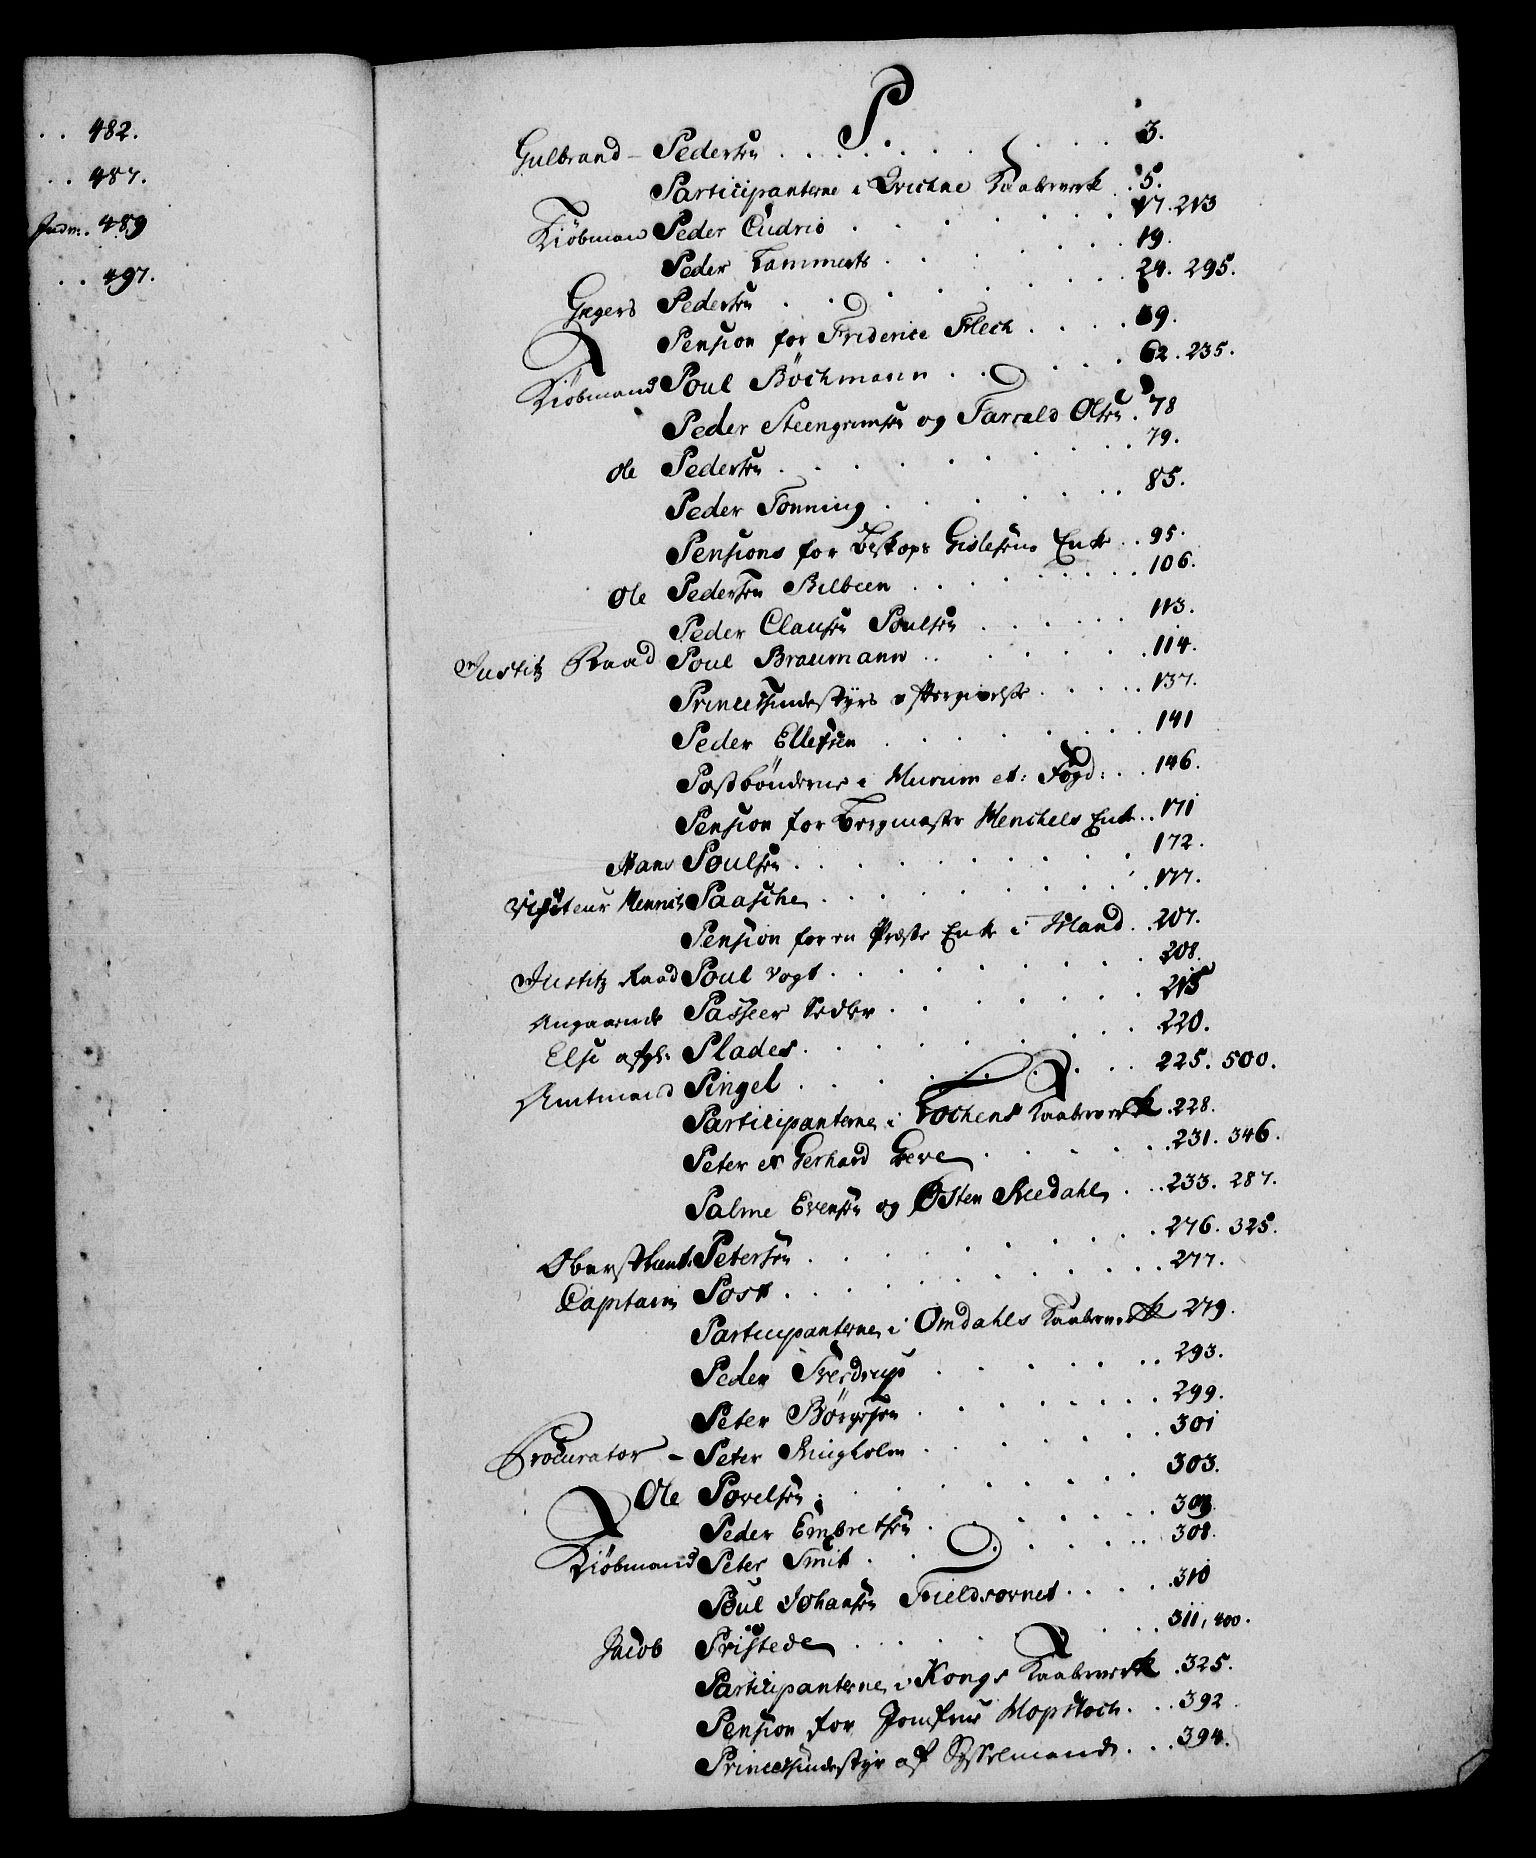 . . 482.
. . 487.
Indm: . 489
. . 497.
P.
Gulbrand - Pedersen . . . . . . . . . 3.
Participanterne i Qvichne Kaaberverk . . 5.
Kiöbmand Peder Cudrio . . . . . . . 17. 213
Peder Lammerts . . . . . . 19.
Gregers Pedersen . . . . . . . . 24. 295.
Pension for Friderice Flech . . . . 59.
Kiöbmand Poul Böchmann . . . . . . 62. 235.
Peder Steengrimsen og Tarrald Olsen . 78
Ole Pedersen . . . . . . . . . 79.
Peder Tonning . . . . . . . 85.
Pensions for Biskops Gislesens Enke . . 95.
Ole Pedersen Bilbeen . . . . . . . . 106.
Peder Clausen Poulsen . . . . . . 113.
Justitz Raad Poul Braemann . . . . . . . 114.
Princessindestyrs eftergivelse . . . . . 137.
Peder Ellefsen . . . . . . . . 141
Postbönderne i Murum et: Fogd: . . 146.
Pension for Bergmester Henchels Enke . . 171
Hans Poulsen . . . . . . . . . . 172.
Visiteur Hennich Paasche . . . . . . . . . . 177.
Pension for en Præste Enke i Island . . 207.
Justitz Raad Poul Vogt . . . . . . . . . 208.
Angaaende Passeer Sedler . . . . . . . 215
Else afgl: Plades . . . . . . . . . 220.
Amtmand Pingel . . . . . . . . . 225. 500.
Participanterne i Lochens Kaaberverk . 228.
Peter et Gerhard Greve . . . . . . . 231. 346.
Palme Evensen og Østen Aaedahl . . . 233. 287.
Oberstlieut: Petersen . . . . . . . . . . 276. 325.
Capitain Post . . . . . . . . . . . 277.
Participanterne i Omdahls Kaaberverk 279.
Peder Sverdrup . . . . . . . 293.
Peter Börgesen . . . . . . . 299.
Procurator - Peter Ringholm . . . . . . . . 301
Ole Povelsen . . . . . . . . . 303.
Peder Embretsen . . . . . . . 303.
Kiöbmand Peter Smit . . . . . . . . 308.
Poul Johansen Fieldsornet . . . . . 310
Jacob Pristede . . . . . . . . . 311, 400.
Participanterne i Kongs Kaaberverk . 325.
Pension for Jomfrue Hopstoch . . . 392
Princessindestyr af Sysselmand . . . 394.